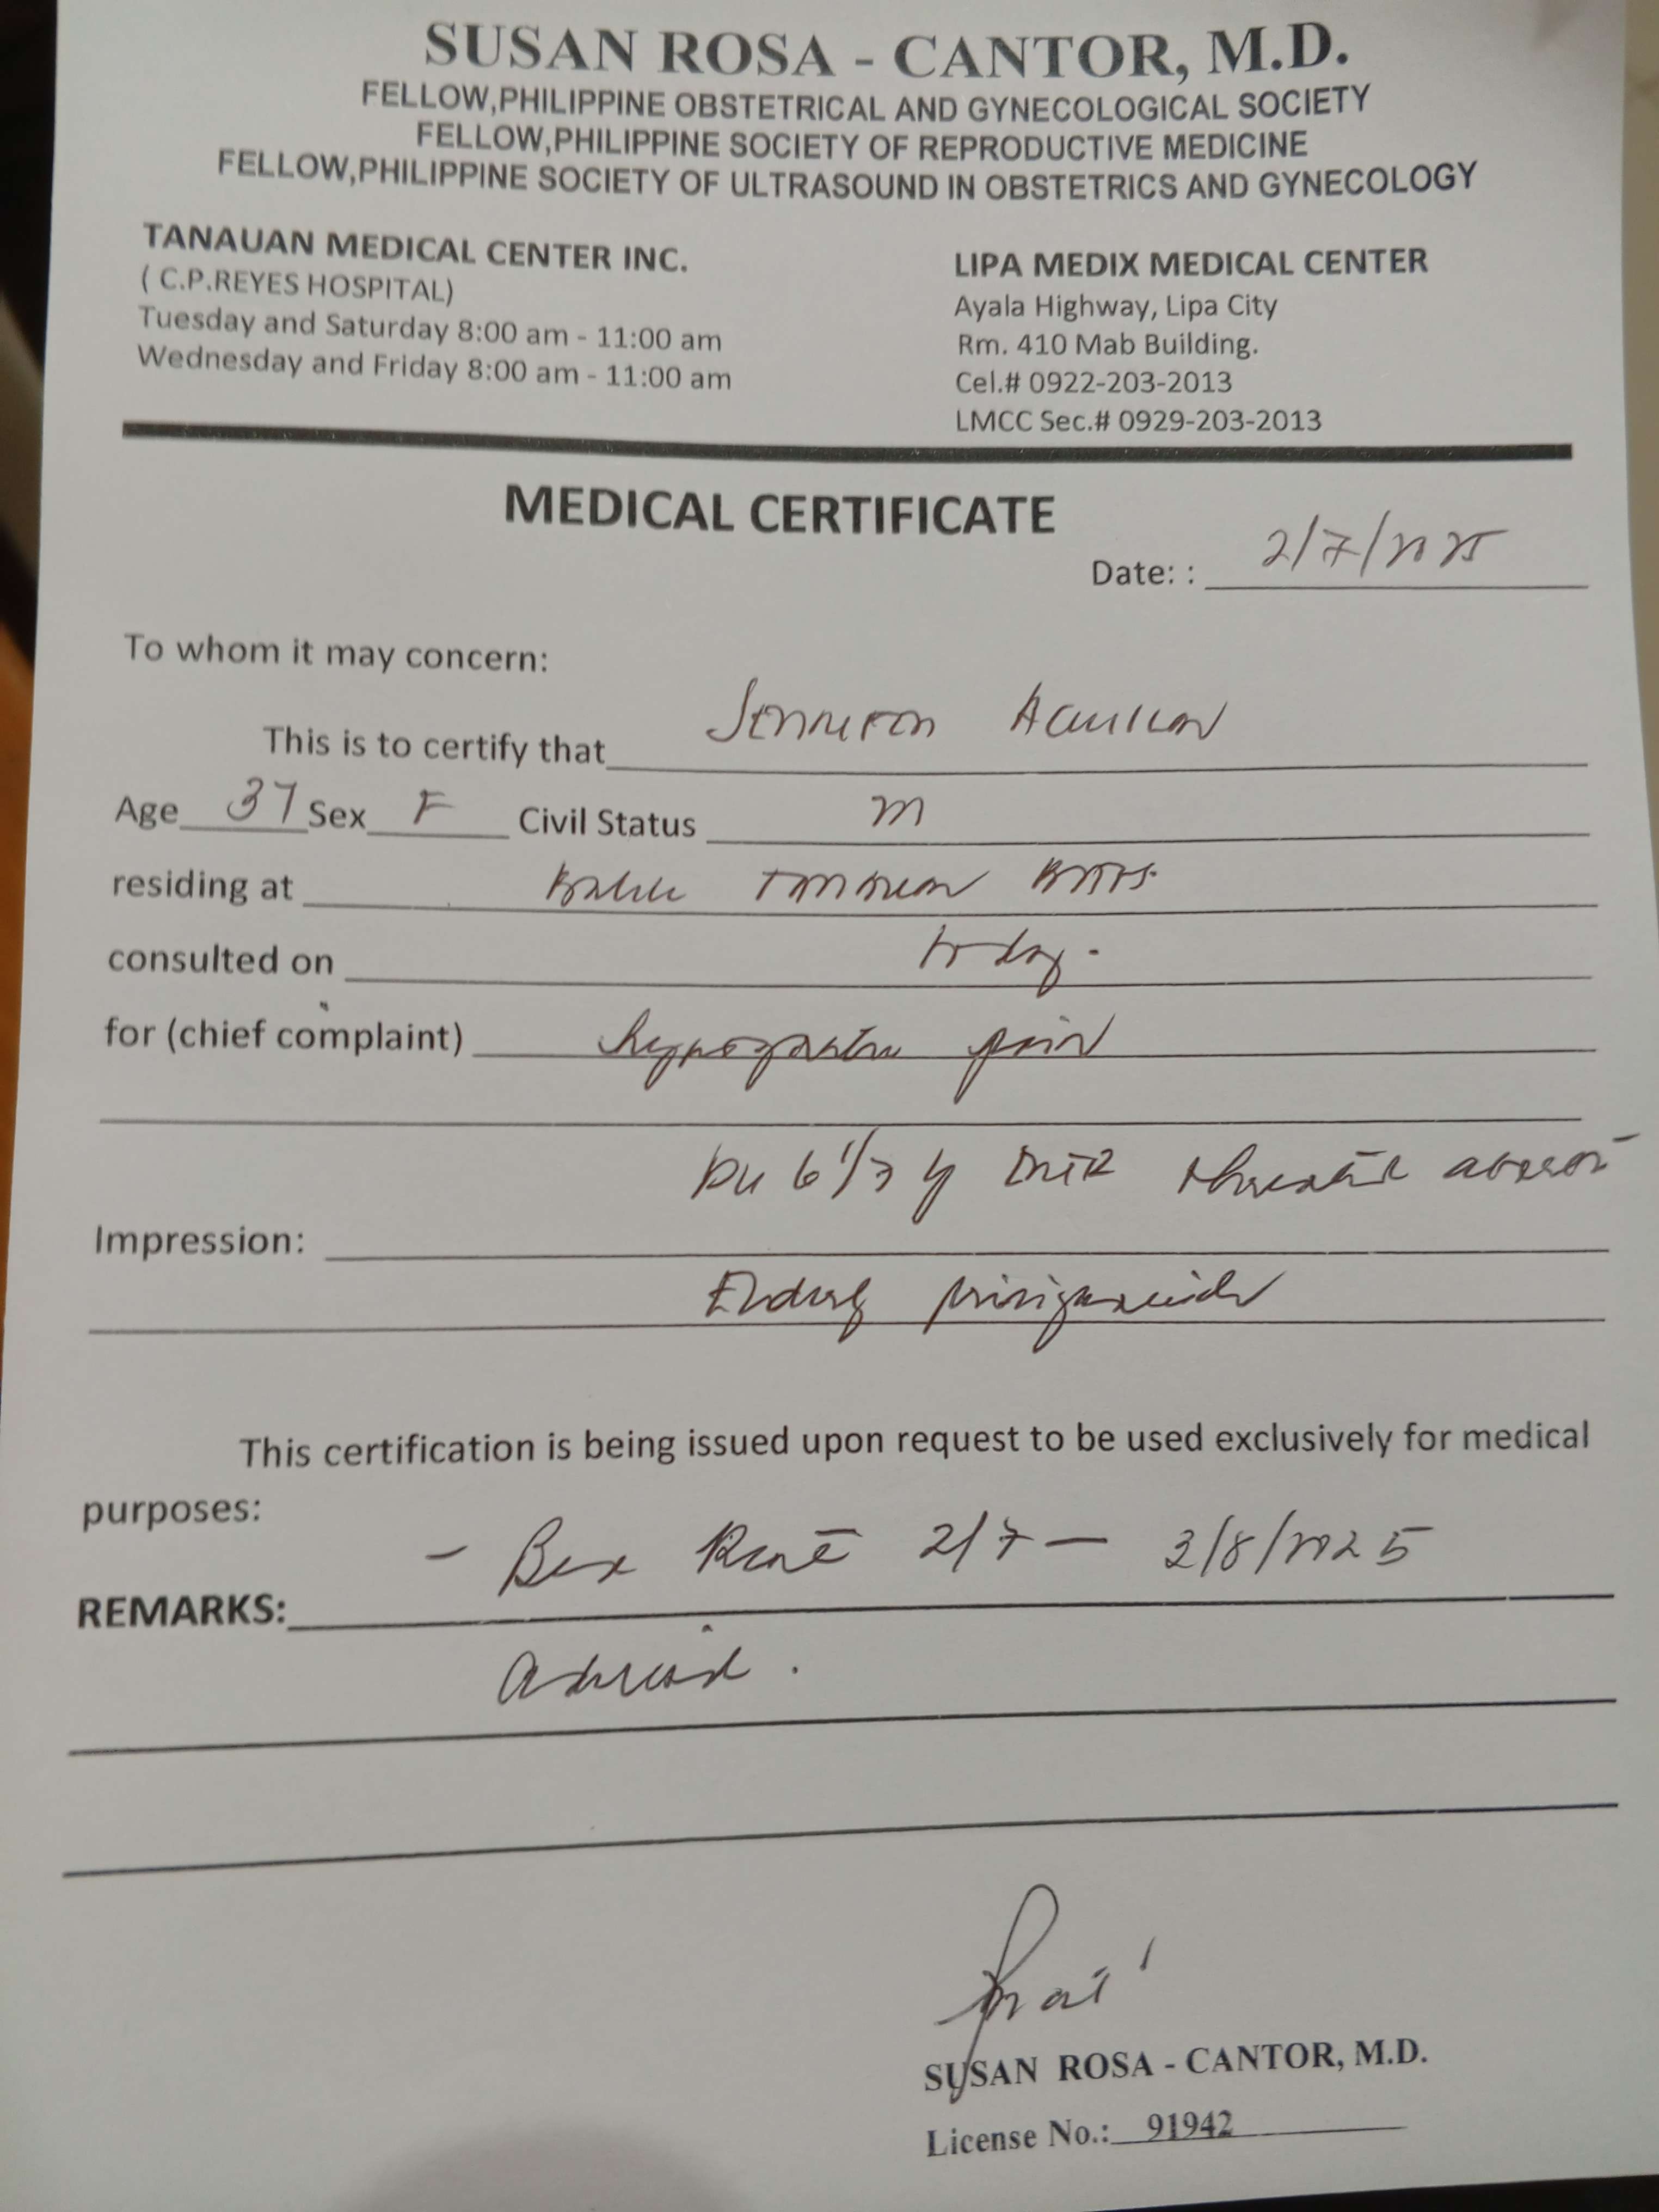 SUSAN ROSA - CANTOR, M.D.
FELLOW,PHILIPPINE OBSTETRICAL AND GYNECOLOGICAL SOCIETY
FELLOW,PHILIPPINE SOCIETY OF REPRODUCTIVE MEDICINE
FELLOW,PHILIPPINE SOCIETY OF ULTRASOUND IN OBSTETRICS AND GYNECOLOGY
TANAUAN MEDICAL CENTER INC.
( C.P.REYES HOSPITAL)
Tuesday and Saturday 8:00 am - 11:00 am
Wednesday and Friday 8:00 am - 11:00 am
LIPA MEDIX MEDICAL CENTER
Ayala Highway, Lipa City
Rm. 410 Mab Building.
Cel.# 0922-203-2013
LMCC Sec.# 0929-203-2013
MEDICAL CERTIFICATE
Date: : 2/7/2025
To whom it may concern:
This is to certify that Jennifer
Age 37 Sex F Civil Status M
residing at Tanauan Bats.
consulted on today.
for (chief complaint) hypogastric pain
PU 6 1/7 threatened abortion
Impression:
Elderly primigravida
This certification is being issued upon request to be used exclusively for medical
purposes:
- Bed Rest 2/7 - 3/8/2025
REMARKS:
advised.
SUSAN ROSA - CANTOR, M.D.
License No.: 91942